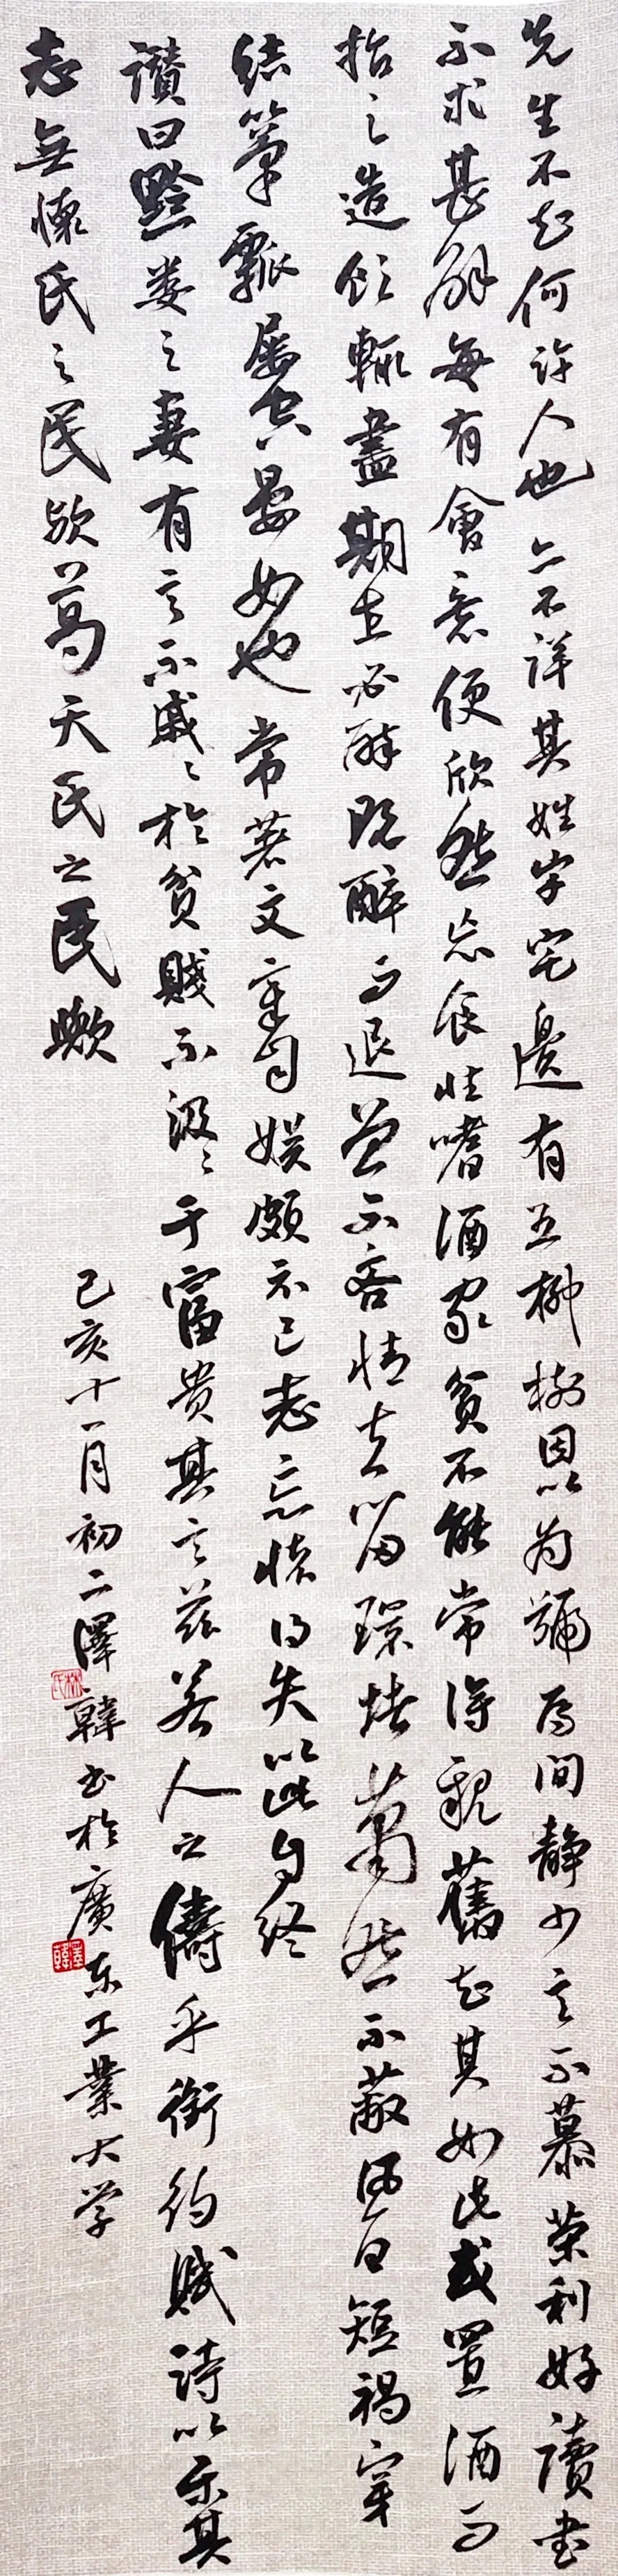 先生不知何許人也亦不詳其姓字宅邊有五柳樹因以为號焉閒靜少言不慕榮利好讀书
不求甚解每有會意便欣然忘食性嗜酒家貧不能常得親舊知其如此或置酒而
招之造飲輒盡期在必醉既醉而退曾不吝情去留環堵蕭然不蔽風日短褐穿
結簞瓢屢空晏如也常著文章自娱頗示己志忘懷得失以此自终
讃曰黔娄之妻有言不戚〻於貧賤不汲〻于富贵其言兹若人之儔乎銜約賦詩以乐其
志無懷氏之民歟葛天氏之民歟
己亥十一月初二澤韓书於廣东工業大学
林氏
澤韓